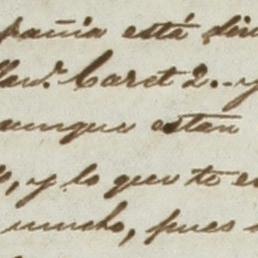 pañia está din
Caret 2.- y
aunque estan
o, y lo que te e
mucho, pues